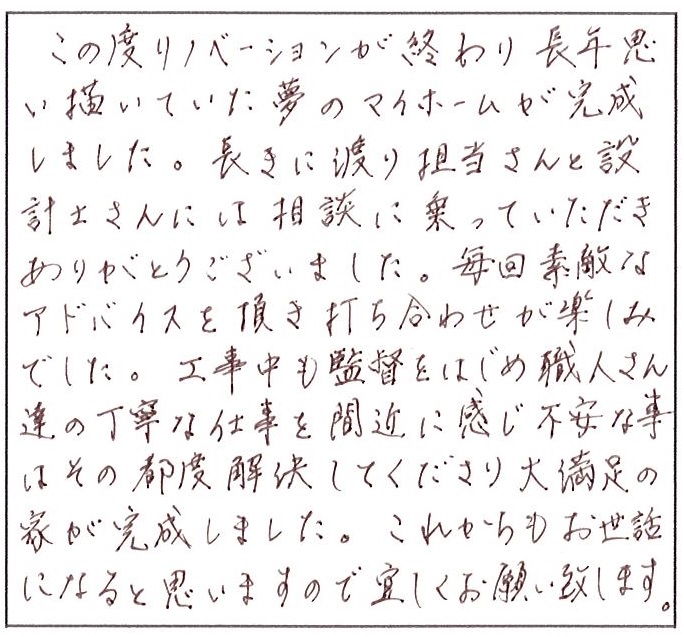 この度リノベーションが終わり長年思
い描いていた夢のマイホームが完成
しました。長きに渡り担当さんと設
計士さんには相談に乗っていただき
ありがとうございました。毎回素敵な
アドバイスを頂き打ち合わせが楽しみ
でした。工事中も監督をはじめ職人さん
達の丁寧な仕事を間近に感じ不安な事
はその都度解決してくださり大満足の
家が完成しました。これからもお世話
になると思いますので宜しくお願い致します。